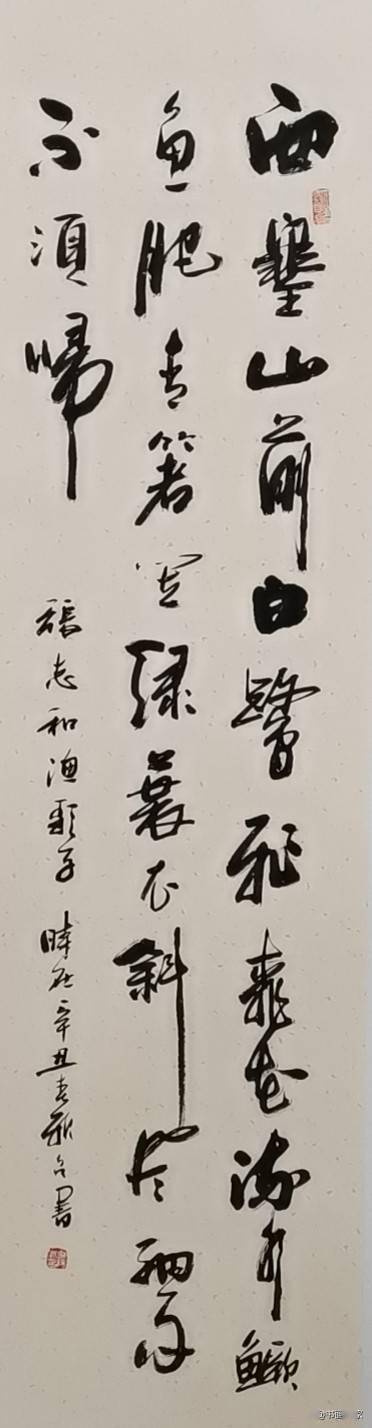 西塞山前白鷺飛桃花流水鱖
魚肥青箬笠綠蓑衣斜風細雨
不須歸
張志和漁歌子 時在辛丑春書